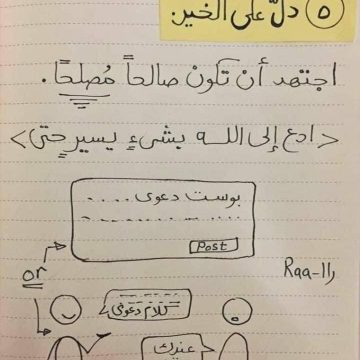 ٥ دلّ على الخير:
اجتهد أن تكون صالحاً مُصلحًا.
< ادع إلى الله بشيءٍ يسير حتى >
بوست دعوى ....
Post
or
Raa-راا
كلام دعوي
عندك